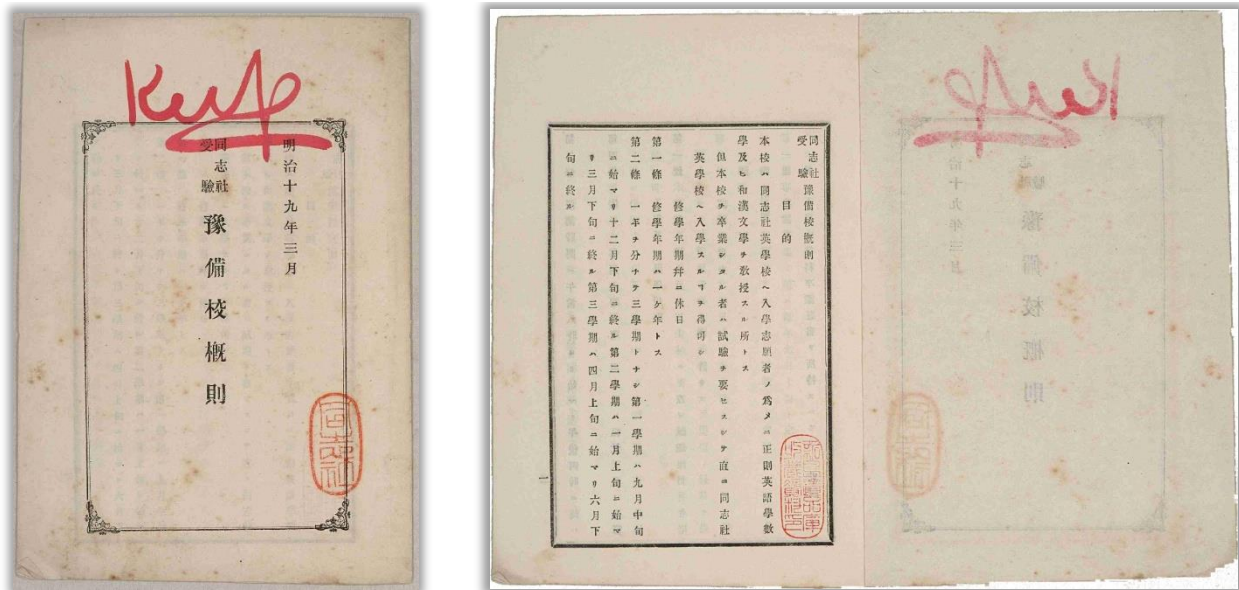 明治十九年三月
同志社
受驗
豫備校概則
同志社
同志社
受驗豫備校概則
目的
本校ハ同志社英學校ヘ入學志願者ノ爲メニ正則英語學數
學及ヒ和漢文學ヲ敎授スル所トス
但本校ヲ卒業シタル者ハ試驗ヲ要セスシテ直ニ同志社
英學校ヘ入學スルヿヲ得可シ
修學年期幷ニ休日
第一條 修學年期ハ一ケ年トス
第二條 一年ヲ分チテ三學期トナシ第一學期ハ九月中旬
ニ始マリ十二月下旬ニ終ル第二學期ハ一月上旬ニ始マ
リ三月下旬ニ終ル第三學期ハ四月上旬ニ始マリ六月下
旬ニ終ル
一